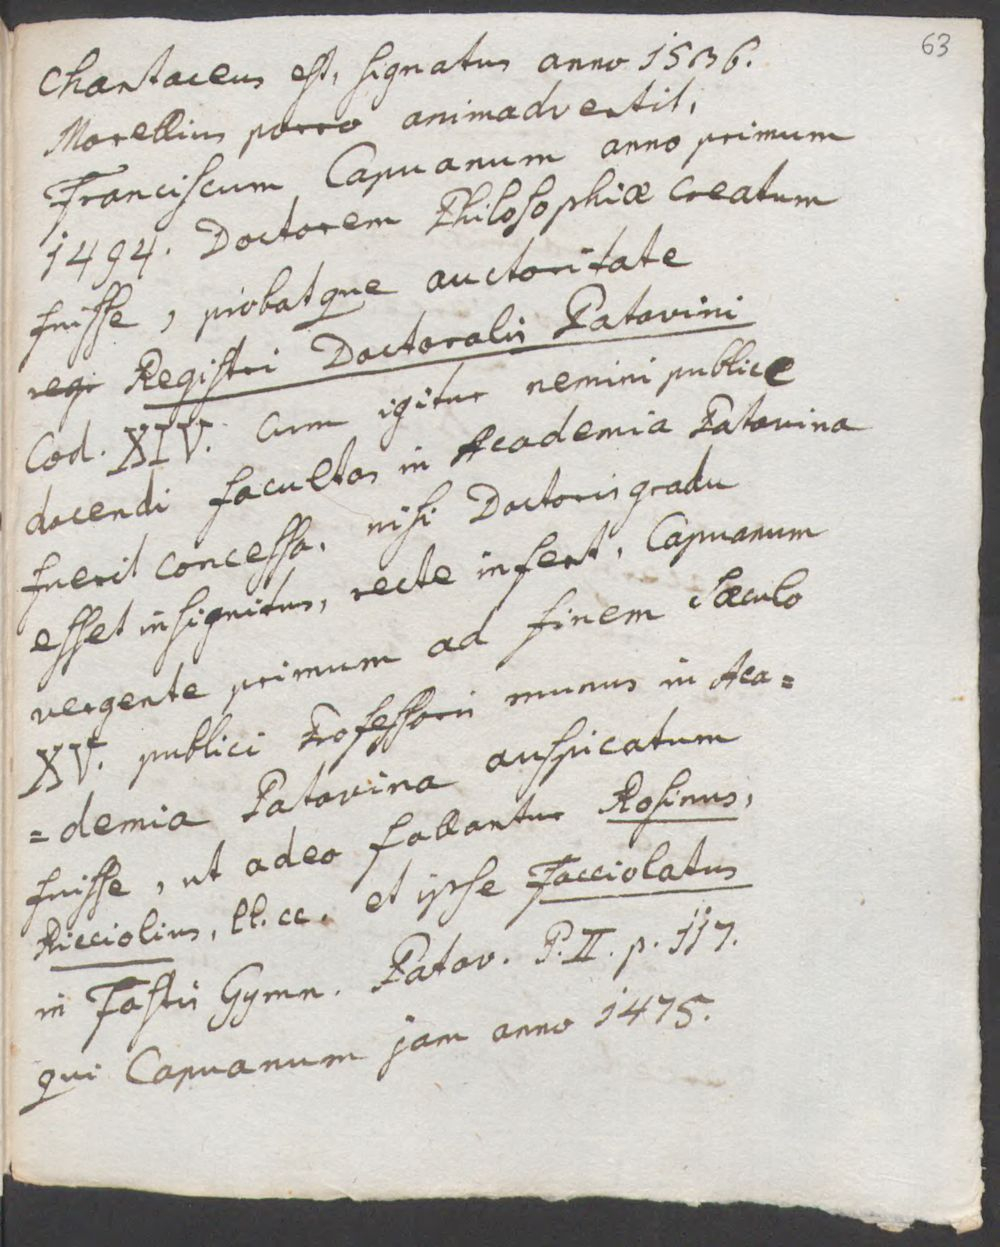 63
Chartaceus est, signatus anno 1506.
Morellius porro animadvertit,
Franciscum Capuanum anno primum
1494. Doctorem Philosophiæ creatum
fuisse, probatque auctoritate
regi Registri Doctoralis Patavini
Cod. XIV. Cum igitur nemini publice
docendi facultas in Academia Patavina
fuerit concessa, nisi Doctoris gradu
esset insignitus, recte infert, Capuanum
vergente primum ad finem Sæculo
XV. publici Professoris munus in Aca=
=demia Patavina auspicatum
fuisse, ut adeo fallantur Rosinus,
Ricciolius, ll. cc. et ipse Facciolatus
in Fastis Gymn. Patav. P. II. p. 117.
qui Capuanum jam anno 1475.